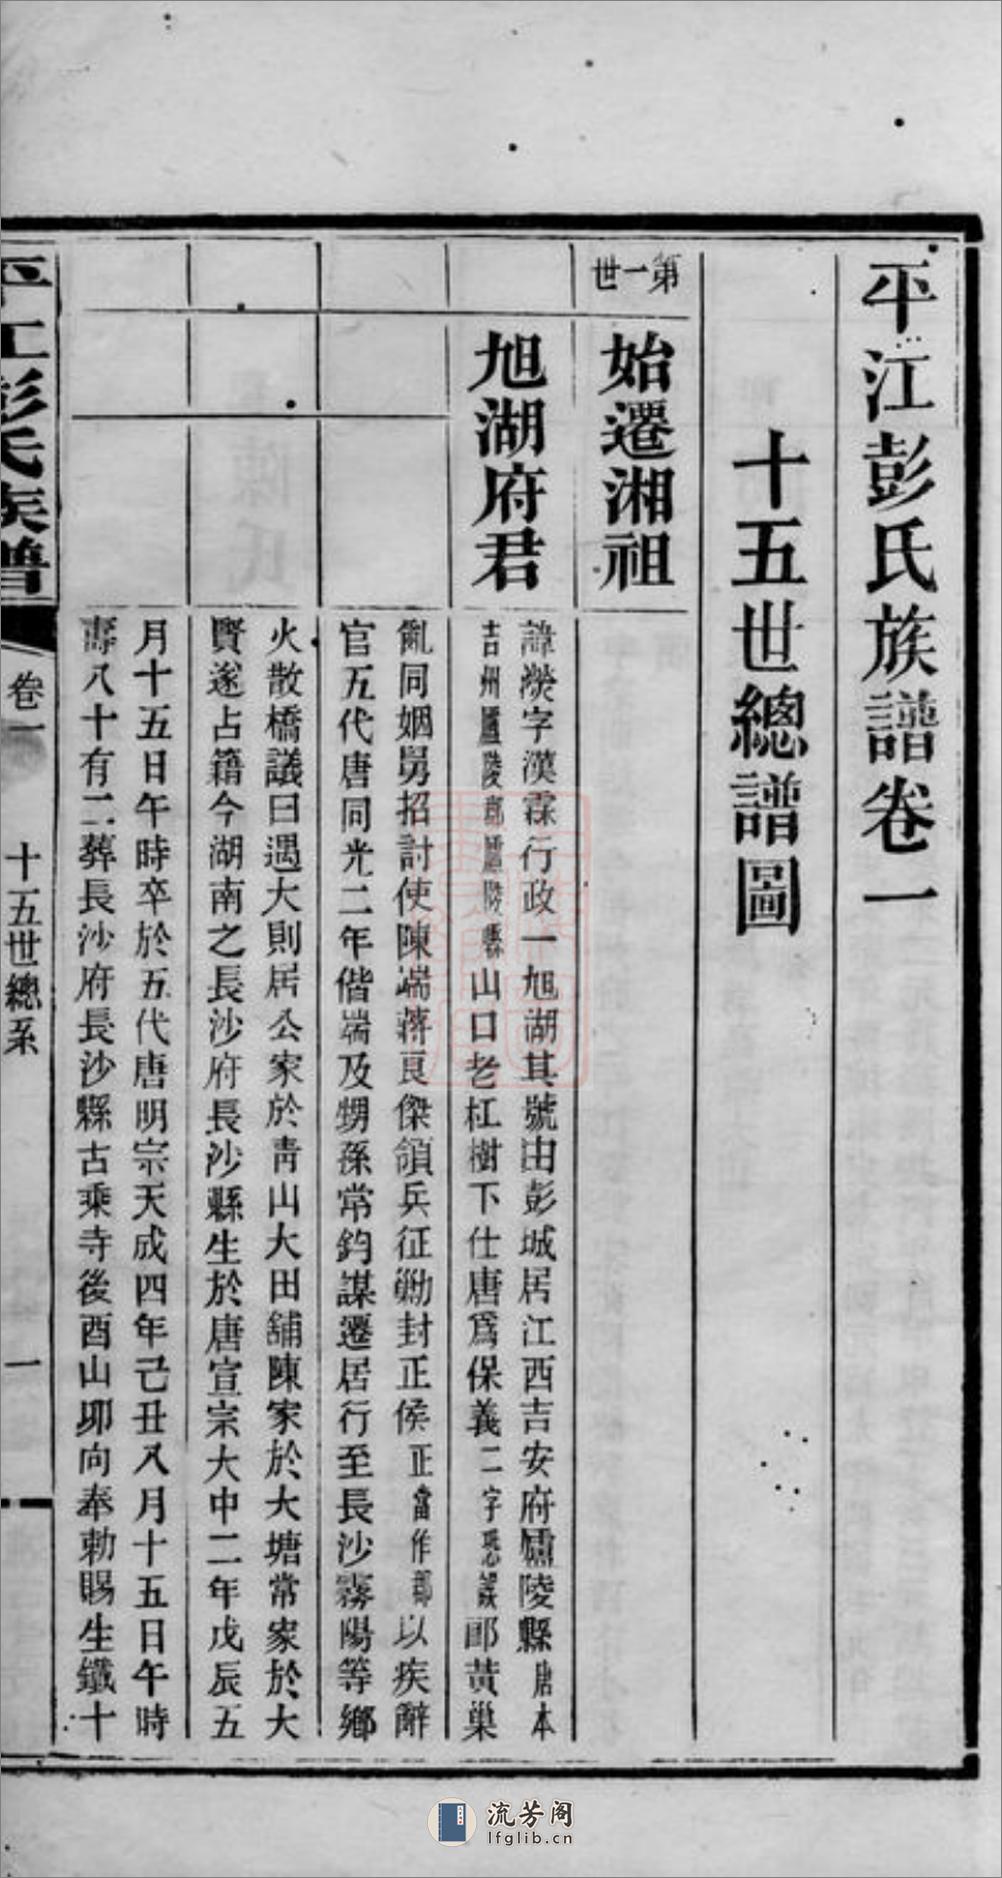 平江彭氏族譜卷一
十五世總譜圖
第一世
始遷湘祖
旭湖府君
諱漢字漢霖行政一旭湖其號由彭城居江西吉安府廬陵縣唐本
吉州廬陵郡廬陵縣山口老杠樹下仕唐爲保義二字恐誤郎黃巢
亂同姻舅招討使陳端蔣良傑領兵征勦封正侯正當作郡以疾辭
官五代唐同光二年偕端及甥孫常鈞謀遷居行至長沙霧陽等鄉
火散橋議曰遇大則居公家於靑山大田舖陳家於大塘常家於大
賢遂占籍今湖南之長沙府長沙縣生於唐宣宗大中二年戊辰五
月十五日午時卒於五代唐明宗天成四年己丑八月十五日午時
壽八十有二葬長沙府長沙縣古乘寺後酉山卯向奉勅賜生鐵十
平江彭氏族譜
卷一
十五世總系
一
流芳阁
lfglib.cn